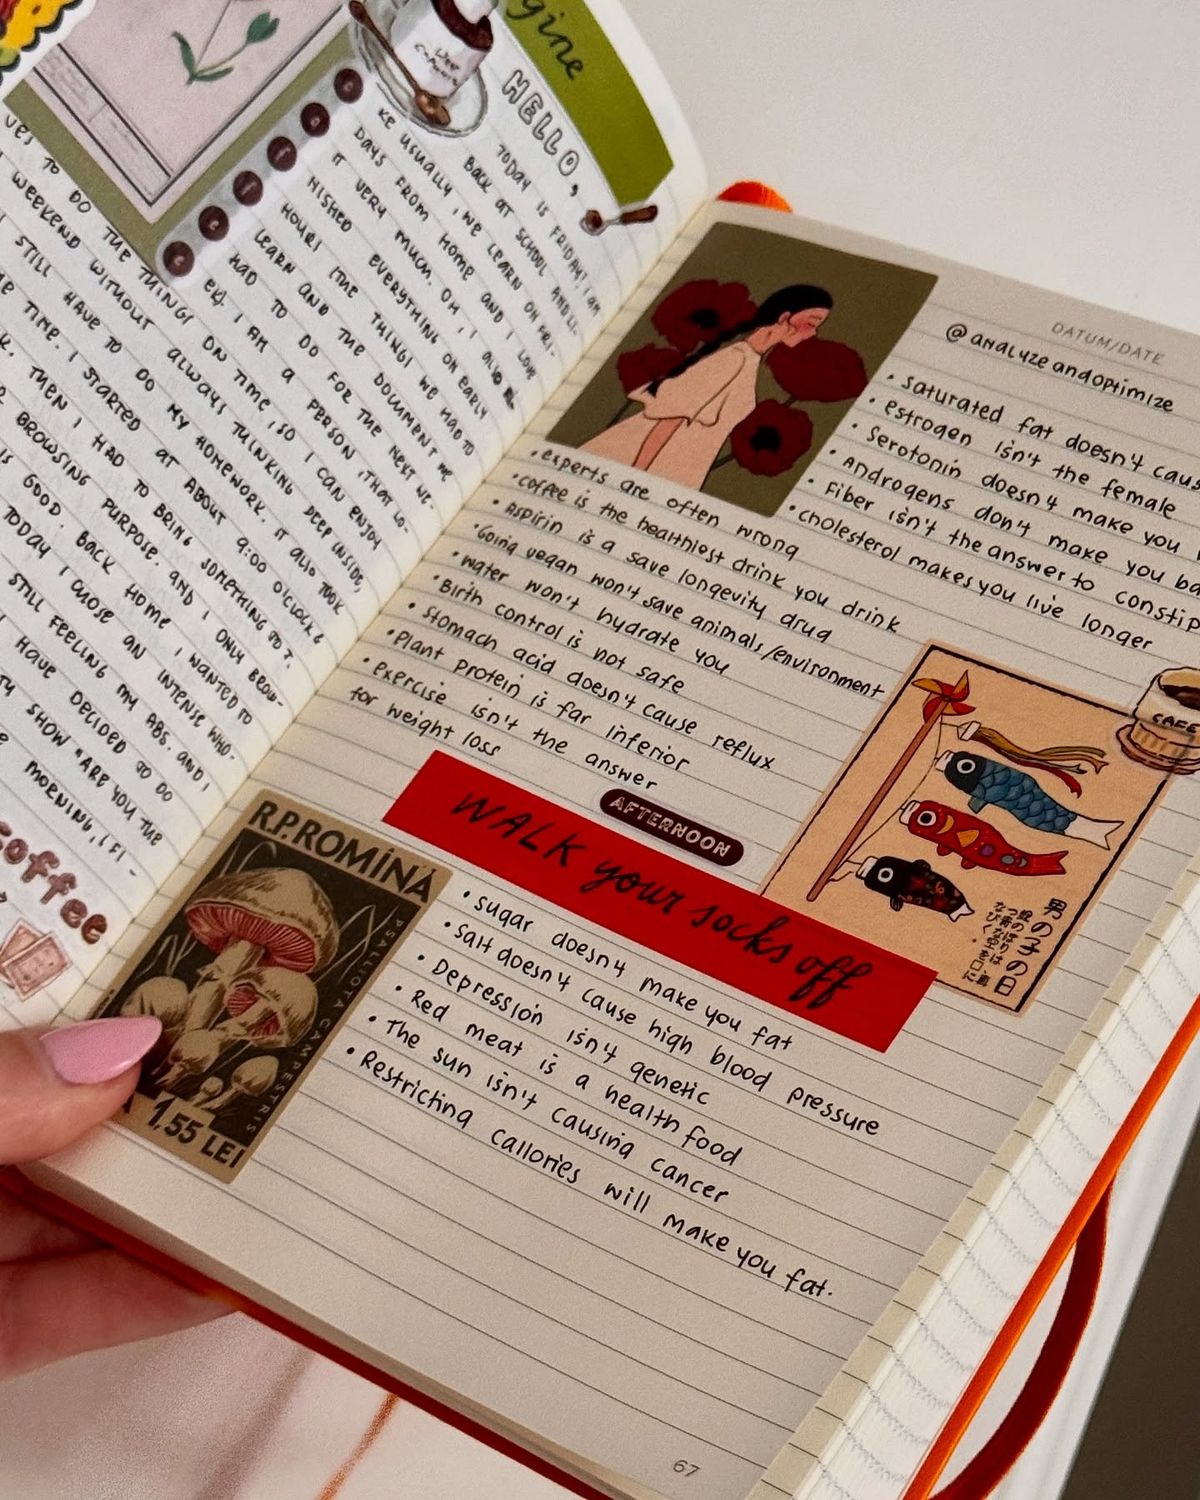 gine
HELLO,
TODAY IS FRIDAY! I AM
BACK AT SCHOOL AND LI-
KE USUALLY, WE LEARN ON FRI-
DAYS FROM HOME AND I LOVE
IT VERY MUCH. OH, I ALSO
NISHED EVERYTHING ON EARLY
HOURS (THE THINGS WE HAD TO
LEARN AND THE DOCUMENT WE
HAD TO DO FOR THE NEXT WE-
EK). I AM A PERSON, THAT LO-
VES TO DO THE THINGS ON TIME, SO I CAN ENJOY
WEEKEND WITHOUT ALWAYS THINKING DEEP INSIDE,
I STILL HAVE TO DO MY HOMEWORK. IT ALSO TOOK
TIME. I STARTED AT ABOUT 9:00 O'CLOCK &
THEN I HAD TO BRING SOMETHING TO
BROWSING PURPOSE. AND I ONLY BROW-
IS GOOD. BACK HOME I WANTED TO
TODAY I CHOSE AN INTENSE WHO-
STILL FEELING MY ABS. AND I
HAVE DECIDED TO DO
SHOW "ARE YOU THE
MORNING, (FI-
coffee
DATUM/DATE
@analyzeandoptimize
• saturated fat doesn't
• estrogen isn't the female
• Serotonin doesn't make you
• Androgens don't make you
• Fiber isn't the answer to
• cholesterol makes you live longer
• experts are often wrong
• coffee is the healthiest drink you drink
• Aspirin is a save longevity drug
• Going vegan won't save animals/environment
• water won't hydrate you
• Birth control is not safe
• Stomach acid doesn't cause reflux
• Plant protein is far inferior
• exercise isn't the answer
for weight loss
CAFE
AFTERNOON
WALK your socks off
男の子の日
R.P.ROMÎNĂ
PSALLIOTA CAMPESTRIS
1,55 LEI
• sugar doesn't make you fat
• Salt doesn't cause high blood pressure
• Depression isn't genetic
• Red meat is a health food
• The sun isn't causing cancer
• Restricting callories will make you fat.
67